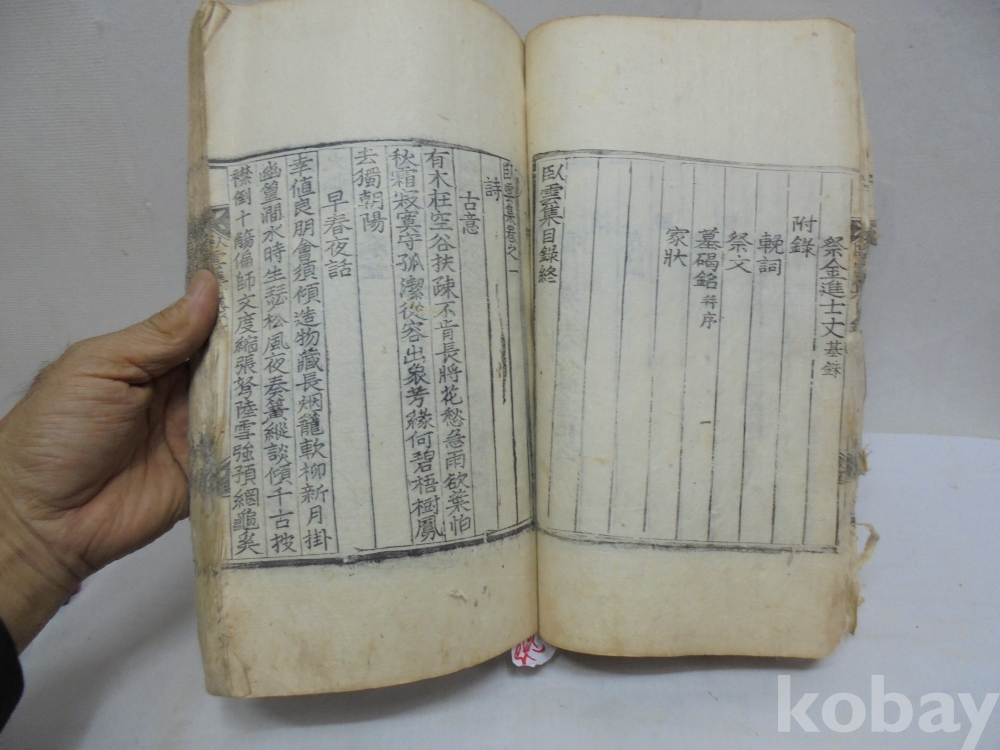 祭金進士文基銖
附錄
輓詞
祭文
墓碣銘幷序
家狀
臥雲集目錄終
臥雲集卷之一
詩
古意
有木枉空谷扶疎不肯長將花愁急雨欲葉怕
秋霜寂寞守孤潔從容出衆芳緣何碧梧樹鳳
去獨朝陽
早春夜話
幸値良朋會須傾造物藏長烟籠軟柳新月掛
幽篁澗水時生瑟松風夜奏簧縱談傾千古披
襟倒十觴偏師文度縮張弩陸雲強預絪龜奚
kobay